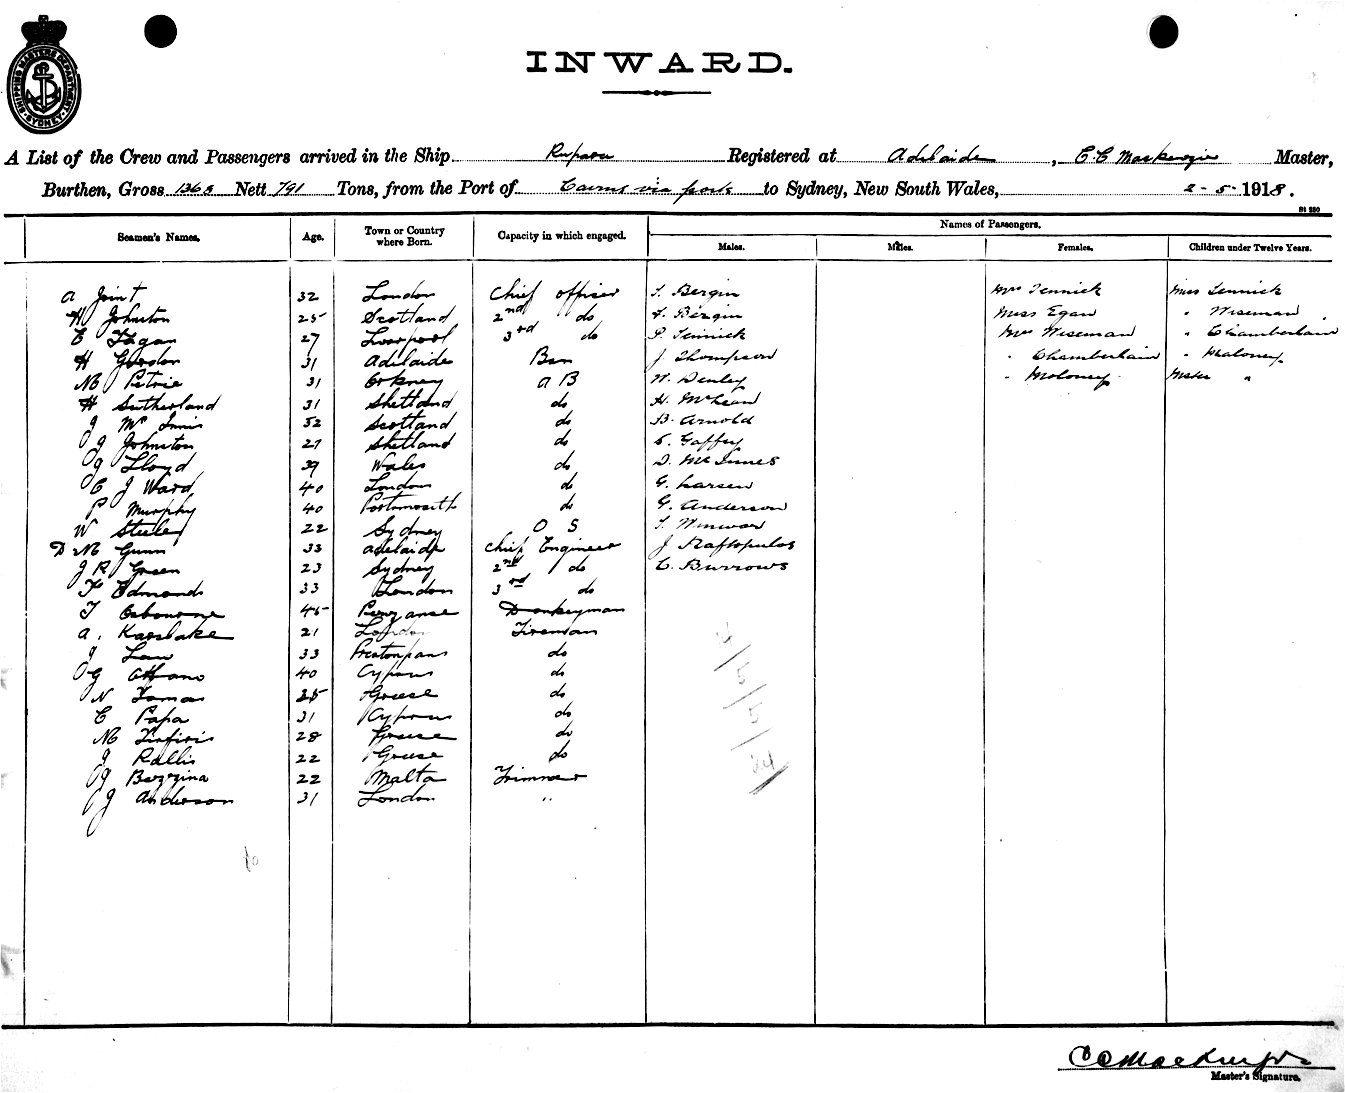 SHIPPING MASTERS DEPARTMENT SYDNEY
INWARD.
A List of the Crew and Passengers arrived in the Ship Rupara Registered at Adelaide, C. C Mackenzie Master,
Burthen, Gross 1365 Nett 791 Tons, from the Port of Cairns via ports to Sydney, New South Wales, 2 - 5 - 1918.
Names of Passengers.
Seamen's Names. Age. Town or Country where Born. Capacity in which engaged. Males. Males. Females. Children under Twelve Years.
A Joint 32 London Chief officer T. Bergin Mrs Tennick Miss Tennick
H Johnston 25 Scotland 2nd do Bergin Miss Egan " Wiseman
E Fagan 27 Liverpool 3rd do P. Tennick Mrs Wiseman " Chamberlain
H Gordon 31 Adelaide Bsn J Thompson " Chamberlain " Maloney
M Petrie 31 Orkney A B W. Denley " Moloney Mster "
H Sutherland 31 Shetland do H. McLean
J Mc Innis 52 Scotland do B. Arnold
J Johnston 27 Shetland do Gaffey
J Lloyd 39 Wales do D. Mc Innes
C J Ward 40 London do G. Larsen
P Murphy 40 Portsmouth do G. Anderson
W Steele 22 Sydney O S T.
D M Gunn 33 Adelaide Chief Engineer J Raftopulos
J R Green 23 Sydney 2nd do C. Burrows
F Edmonds 33 London 3rd do
T Osbourne 45 Penzance Donkeyman
A. Karslake 21 London Fireman
J Law 33 Prestonpans do
G 40 Cyprus do
N Tomas 25 Greese do
C Papa 31 Cyprus do
M 28 Greese do
J Rallis 22 Greese do
G Bezzina 22 Malta Trimmer
J Anderson 31 London "
C C Mackenzie
Master's Signature.